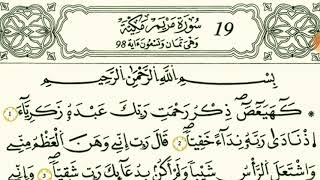 سُورَةُ مَرْيَمَ مَكِّيَّةٌ 19
وَهِيَ ثَمَانٌ وَتِسْعُونَ ءَايَة 98
بِسْمِ اللَّهِ الرَّحْمَٰنِ الرَّحِيمِ
كَهَيَعَصَ ذِكْرُ رَحْمَتِ رَبِّكَ عَبْدَهُ زَكَرِيَّاءَ 1
اِذْ نَادَى رَبَّهُ نِدَآءً خَفِيّاً 2 قَالَ رَبِّ إِنِّي وَهَنَ الْعَظْمُ مِنِّي
وَاشْتَعَلَ الرَّأْسُ شَيْباً وَلَمْ أَكُنْ بِدُعَآئِكَ رَبِّ شَقِيّاً 3 وَإِنِّي